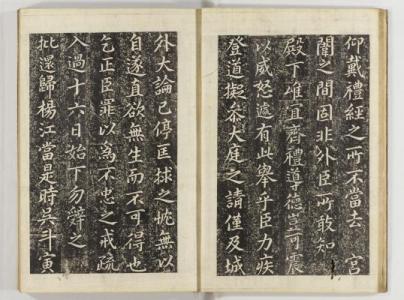 仰戴禮經之所不當去宮
闈之間固非外臣所敢知
殿下雖宜齊禮導德豈可震
以威怒遽有此舉乎臣力疾
登道擬叅大庭之請僅及城
外大論已停匡捄之忱無以
自遂直欲無生而不可得也
乞正臣罪以為不忠之戒疏
入過十六日始下勿辭之
批還歸楊江當是時吳斗寅